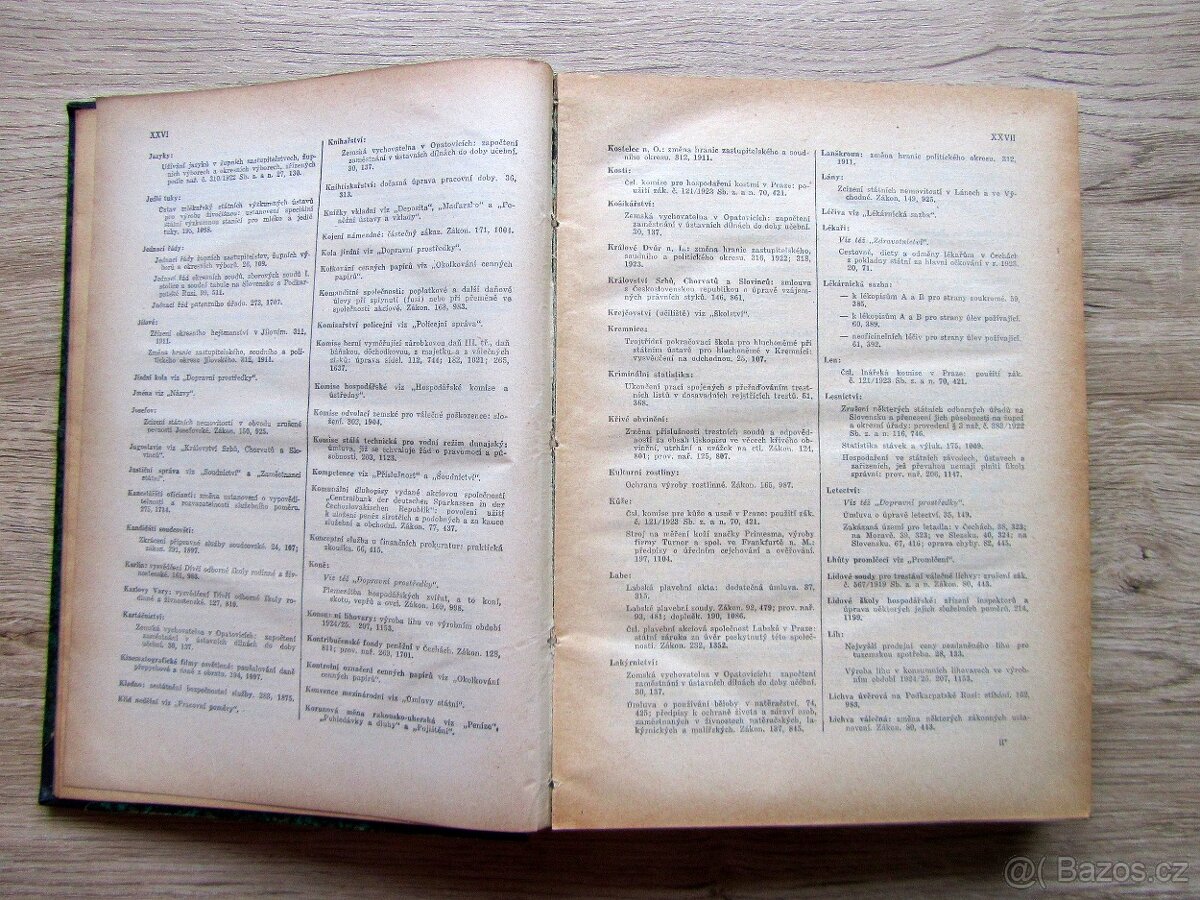 XXVI
Jazyky:
Užívání jazyků v župních zastupitelstvech, žup-
ních výborech a okresních výborech, zřízených
podle nař. č. 310/1922 Sb. z. a n. 27, 130.
Jedlé tuky:
Ústav mlékařský státních výzkumných ústavů
pro výrobu živočišnou: ustanovení speciální
státní výzkumnou stanicí pro mléko a jedlé
tuky. 195, 1095.
Jednací řády:
Jednací řády župních zastupitelstev, župních vý-
borů a okresních výborů. 26, 109.
Jednací řád okresních soudů, sborových soudů I.
stolice a soudní tabule na Slovensku a Podkar-
patské Rusi. 99, 511.
Jednací řád patentního úřadu. 273, 1707.
Jílové:
Zřízení okresního hejtmanství v Jílovém. 311,
1911.
Změna hranic zastupitelského, soudního a poli-
tického okresu jílovského. 312, 1911.
Jízdní kola viz „Dopravní prostředky“.
Jména viz „Názvy“.
Josefov:
Zcizení státních nemovitostí v obvodu zrušené
pevnosti Josefovské. Zákon. 150, 925.
Jugoslavie viz „Království Srbů, Chorvatů a Slo-
vinců“.
Justiční správa viz „Soudnictví“ a „Zaměstnanci
státní“.
Kancelářští oficianti: změna ustanovení o vypovědi-
telnosti a rozvazatelnosti služebního poměru.
275, 1714.
Kandidáti soudcovští:
Zkrácení přípravné služby soudcovské. 24, 107;
zákon. 291, 1897.
Karlín: vysvědčení Dívčí odborné školy rodinné a živ-
nostenské. 161, 983.
Karlovy Vary: vysvědčení Dívčí odborné školy rodi-
nné a živnostenské. 127, 819.
Kartáčnictví:
Zemská vychovatelna v Opatovicích: započtení
zaměstnání v ústavních dílnách do doby
učební. 30, 137.
Kinematografické filmy osvětlené: paušalování daně
přepychové a daně z obratu. 194, 1097.
Kladno: sestátnění bezpečnostní služby. 283, 1875.
Klid nedělní viz „Pracovní poměry“.
Knihařství:
Zemská vychovatelna v Opatovicích: započtení
zaměstnání v ústavních dílnách do doby učební.
30, 137.
Knihtiskařství: dočasná úprava pracovní doby. 36,
313.
Knížky vkladní viz „Deposita“, „Maďarsko“ a „Pe-
něžní ústavy a vklady“.
Kojení námezdné: částečný zákaz. Zákon. 171, 1004.
Kola jízdní viz „Dopravní prostředky“.
Kolkování cenných papírů viz „Okolkování cenných
papírů“.
Komanditní společnosti: poplatkové a další daňové
úlevy při splynutí (fusi) nebo při přeměně ve
společnosti akciové. Zákon. 168, 983.
Komisařství policejní viz „Policejní správa“.
Komise berní vyměřující zárobkovou daň III. tř., daň
báňskou, důchodkovou, z majetku a z válečných
zisků: úprava sídel. 112, 744; 182, 1021; 265,
1637.
Komise hospodářské viz „Hospodářské komise a
ústředny“.
Komise odvolací zemské pro válečné poškozence: slo-
žení. 303, 1904.
Komise stálá technická pro vodní režim dunajský:
úmluva, jíž se schvaluje řád o pravomoci a pů-
sobnosti. 203, 1123.
Kompetence viz „Příslušnost“ a „Soudnictví“.
Komunální dluhopisy vydané akciovou společností
„Centralbank der deutschen Sparkassen in der
Čechoslovakischen Republik“: povolení užití
k uložení peněz sirotčích a podobných a za kauce
služební a obchodní. Zákon. 77, 437.
Konceptní služba u finančních prokuratur: praktická
zkouška. 66, 415.
Koně:
Viz též „Dopravní prostředky“.
Plemenitba hospodářských zvířat, a to koní,
skotu, vepřů a ovcí. Zákon. 169, 998.
Konsumní lihovary: výroba lihu ve výrobním období
1924/25. 207, 1153.
Kontribučenské fondy peněžní v Čechách. Zákon. 128,
811; prov. nař. 269, 1701.
Kontrolní označení cenných papírů viz „Okolkování
cenných papírů“.
Konvence mezinárodní viz „Úmluvy státní“.
Korunová měna rakousko-uherská viz „Peníze“,
„Pohledávky a dluhy“ a „Pojištění“.
XXVII
Kostelec n. O.: změna hranic zastupitelského a soud-
ního okresu. 312, 1911.
Kosti:
Čsl. komise pro hospodaření kostmi v Praze: po-
užití zák. č. 121/1923 Sb. z. a n. 70, 421.
Košíkářství:
Zemská vychovatelna v Opatovicích: započtení
zaměstnání v ústavních dílnách do doby učební.
30, 137.
Králové Dvůr n. L.: změna hranic zastupitelského,
soudního a politického okresu. 316, 1922; 318,
1923.
Království Srbů, Chorvatů a Slovinců: smlouva
s Československou republikou o úpravě vzájem-
ných právních styků. 146, 861.
Krejčovství (učiliště) viz „Školství“.
Kremnice:
Trojtřídní pokračovací škola pro hluchoněmé při
státním ústavě pro hluchoněmé v Kremnici:
vysvědčení na odchodnou. 25, 107.
Kriminální statistika:
Ukončení prací spojených s přeřaďováním trest-
ních listů v dosavadních rejstřících trestů. 51,
368.
Křivé obvinění:
Změna příslušnosti trestních soudů a odpověd-
nosti za obsah tiskopisu ve věcech křivého ob-
vinění, utrhání a urážek na cti. Zákon. 124,
801; prov. nař. 125, 807.
Kulturní rostliny:
Ochrana výroby rostlinné. Zákon. 165, 987.
Kůže:
Čsl. komise pro kůže a usně v Praze: použití zák.
č. 121/1923 Sb. z. a n. 70, 421.
Stroj na měření koží značky Primesma, výroby
firmy Turner a spol. ve Frankfurtě n. M.:
předpisy o úředním cejchování a ověřování.
197, 1104.
Labe:
Labská plavební akta: dodatečná úmluva. 37,
315.
Labské plavební soudy. Zákon. 92, 479; prov. nař.
93, 481; doplněk. 190, 1086.
Čsl. plavební akciová společnost Labská v Praze:
státní záruka za úvěr poskytnutý této společ-
nosti. Zákon. 232, 1352.
Lakýrnictví:
Zemská vychovatelna v Opatovicích: započtení
zaměstnání v ústavních dílnách do doby učební.
30, 137.
Úmluva o používání běloby v natěračství. 74,
425; předpisy k ochraně života a zdraví osob,
zaměstnaných v živnostech natěračských, la-
kýrnických a malířských. Zákon. 137, 845.
Lanškroun: změna hranic politického okresu. 312,
1911.
Lány:
Zcizení státních nemovitostí v Lánech a ve Vý-
chodné. Zákon. 149, 925.
Léčiva viz „Lékárnická sazba“.
Lékaři:
Viz též „Zdravotnictví“.
Cestovní, diety a odměny lékařům v Čechách
z pokladny státní za hlavní očkování v r. 1923.
20, 71.
Lékárnická sazba:
— k lékopisům A a B pro strany soukromé. 59,
385.
— k lékopisům A a B pro strany úlev požívající.
60, 389.
— neoficinelních léčiv pro strany úlev požívající.
61, 392.
Len:
Čsl. lnářská komise v Praze: použití zák.
č. 121/1923 Sb. z. a n. 70, 421.
Lesnictví:
Zrušení některých státních odborných úřadů na
Slovensku a přenesení jich působnosti na župní
a okresní úřady: provedení § 3 nař. č. 380/1922
Sb. z. a n. 116, 746.
Statistika stávek a výluk. 175, 1009.
Hospodaření ve státních závodech, ústavech a
zařízeních, jež převahou nemají plniti úkolů
správní: prov. nař. 206, 1147.
Letectví:
Viz též „Dopravní prostředky“.
Úmluva o úpravě letectví. 35, 149.
Zakázaná území pro letadla: v Čechách. 38, 323;
na Moravě. 39, 323; ve Slezsku. 40, 324; na
Slovensku. 67, 416; oprava chyby. 82, 445.
Lhůty promlčecí viz „Promlčení“.
Lidové soudy pro trestání válečné lichvy: zrušení zák.
č. 567/1919 Sb. z. a n. Zákon. 80, 443.
Lidové školy hospodářské: zřízení inspektorů a
úprava některých jejich služebních poměrů. 214,
1199.
Líh:
Nejvyšší prodejní ceny nezdaněného lihu pro
tuzemskou spotřebu. 28, 133.
Výroba lihu v konsumních lihovarech ve výrob-
ním období 1924/25. 207, 1153.
Lichva úvěrová na Podkarpatské Rusi: stíhání. 162,
983.
Lichva válečná: změna některých zákonných usta-
novení. Zákon. 80, 443.
II*
@( Bazos.cz